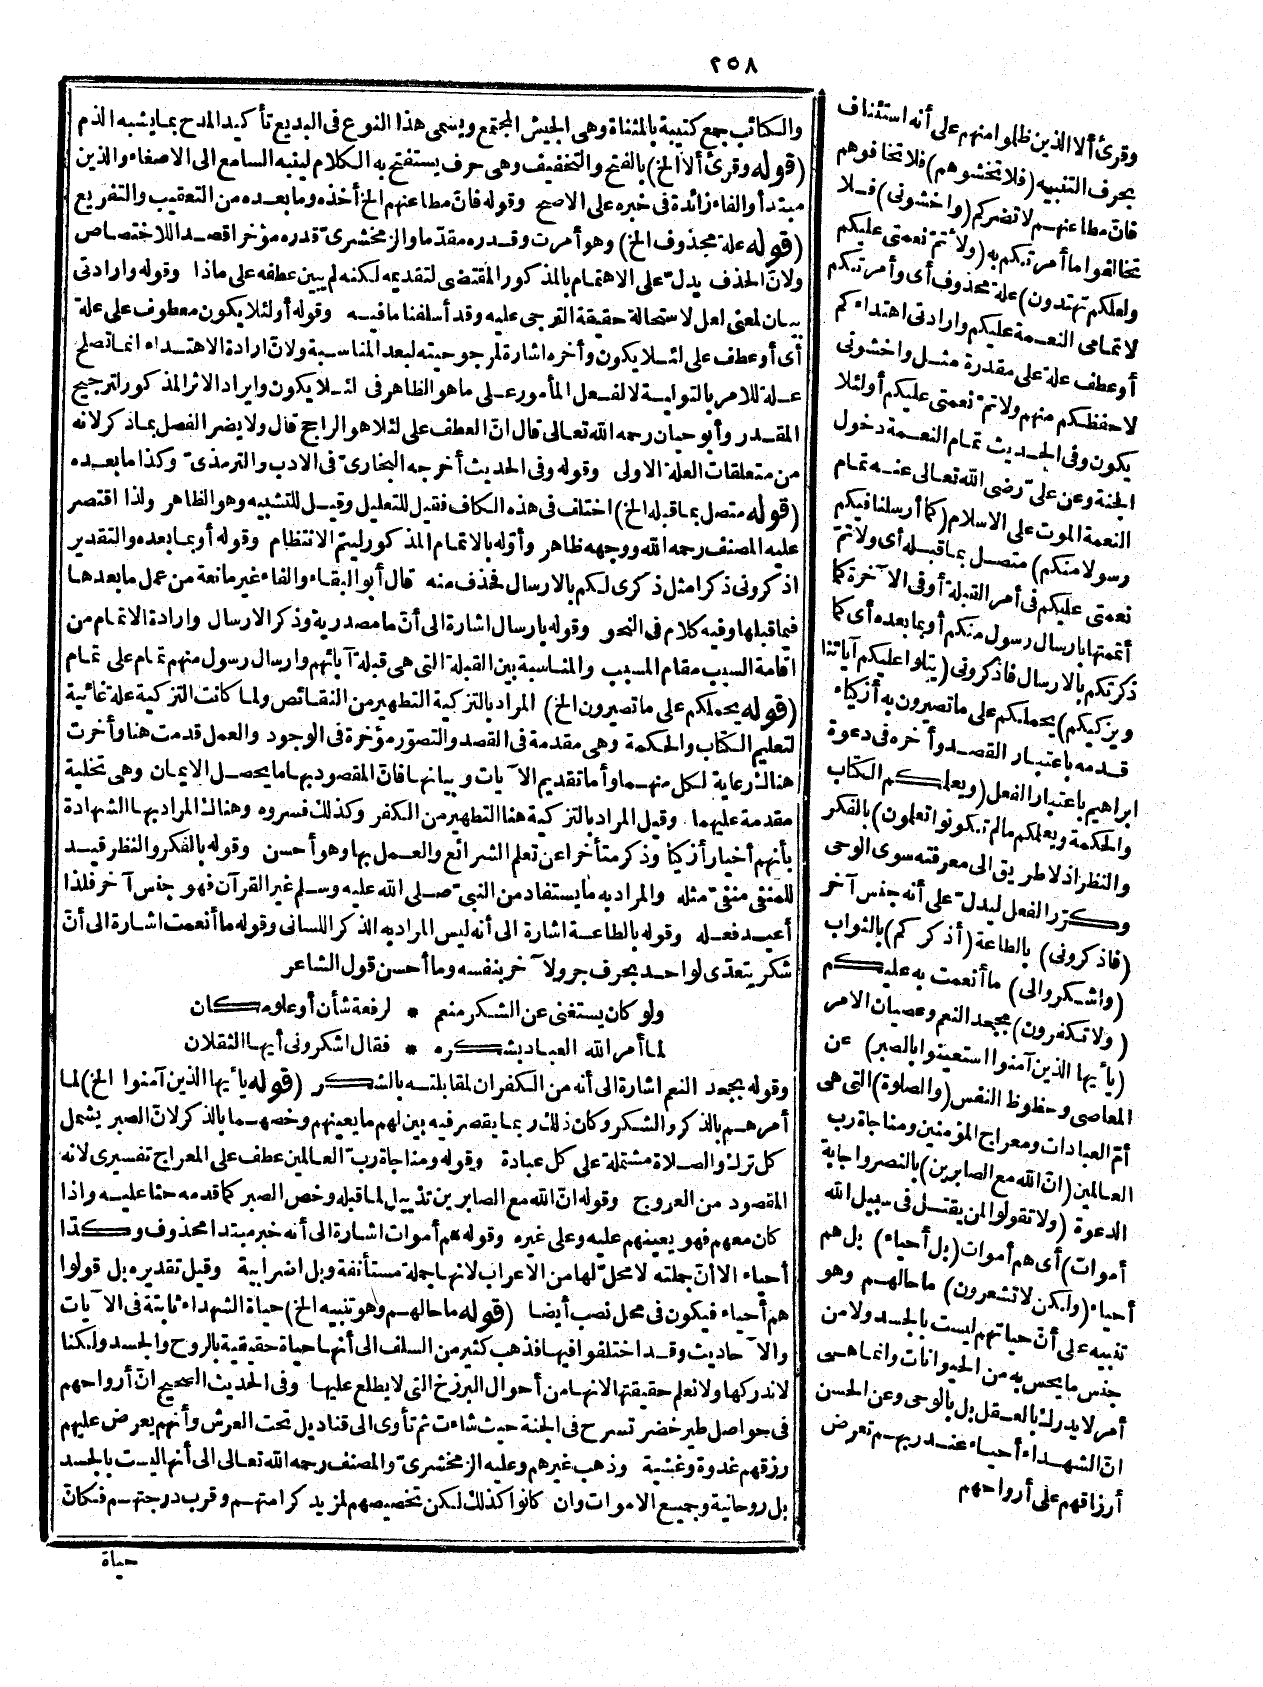 ٢٥٨
وقرئ ألا الذين ظلموا منهم على أنه استئناف
بحرف التنبيه (فلا تخشوهم) فلا تخافوهم
فانّ مطاعنهم لا تضركم (واخشونى) فلا
تخالفوا ما أمرتكم به (ولاتمّ نعمتى عليكم
ولعلكم تهتدون) علة محذوف أى وأمرتكم
لاتمامى النعمة عليكم وارادتى اهتداءكم
أو عطف على علة مقدرة مثل واخشونى
لاحفظكم منهم ولاتمّ نعمتى عليكم أو لئلا
يكون وفى الحديث تمام النعمة دخول
الجنة وعن علىّ رضى الله تعالى عنه تمام
النعمة الموت على الاسلام (كما أرسلنا فيكم
رسولا منكم) متصل بما قبله أى ولاتمّ
نعمتى عليكم فى أمر القبلة أو فى الآخرة كما
أتممتها بارسال رسول منكم أو بما بعده أى كما
ذكرتكم بالارسال فاذكرونى (يتلوا عليكم آياتنا
ويزكيكم) يحملكم على ما تصيرون به أزكياء
قدمه باعتبار القصد وأخره فى دعوة
ابراهيم باعتبار الفعل (ويعلمكم الكتاب
والحكمة ويعلمكم ما لم تكونوا تعلمون) بالفكر
والنظر اذ لا طريق الى معرفته سوى الوحى
وكرّر الفعل ليدلّ على أنه جنس آخر
(فاذكرونى) بالطاعة (أذكركم) بالثواب
(واشكروا لى) ما أنعمت به عليكم
(ولا تكفرون) بجحد النعم وعصيان الامر
(يأيها الذين آمنوا استعينوا بالصبر) عن
المعاصى وحظوظ النفس (والصلوة) التى هى
أمّ العبادات ومعراج المؤمنين ومناجاة رب
العالمين (انّ الله مع الصابرين) بالنصر واجابة
الدعوة (ولا تقولوا لمن يقتل فى سبيل الله
أموات) أى هم أموات (بل أحياء) بل هم
أحياء (ولكن لا تشعرون) ما حالهم وهو
تنبيه على أنّ حياتهم ليست بالجسد ولا من
جنس ما يحس به من الحيوانات وانما هى
أمر لا يدرك بالعقل بل بالوحى وعن الحسن
انّ الشهداء أحياء عند ربهم تعرض
أرزاقهم على أرواحهم
والكتائب جمع كتيبة بالمثناة وهى الجيش المجتمع ويسمى هذا النوع فى البديع تأكيد المدح بما يشبه الذم
(قوله وقرئ ألا الخ) بالفتح والتخفيف وهى حرف يستفتح به الكلام لينبه السامع الى الاصغاء والذين
مبتدأ والفاء زائدة فى خبره على الاصح وقوله فانّ مطاعنهم الخ أخذه وما بعده من التعقيب والتفريع
(قوله علة محذوف الخ) وهو أمرت وقدره مقدّما والزمخشرىّ قدره مؤخرا قصدا للاختصاص
ولانّ الحذف يدلّ على الاهتمام بالمذكور المقتضى لتقديمه لكنه لم يبين عطفه على ماذا وقوله وارادتى
بيان لمعنى لعل لاستحالة حقيقة الترجى عليه وقد أسلفنا ما فيه وقوله أو لئلا يكون معطوف على علة
أى أو عطف على لئلا يكون وأخره اشارة لمرجوحيته لبعد المناسبة ولانّ ارادة الاهتداء انما تصلح
علة للامر بالتولية لا لفعل المأمور على ما هو الظاهر فى لئلا يكون وايراد الاثر المذكور لترجيح
المقدر وأبو حيان رحمه الله تعالى قال انّ العطف على لئلا هو الراجح قال ولا يضر الفصل بما ذكر لانه
من متعلقات العلة الاولى وقوله وفى الحديث أخرجه البخارىّ فى الادب والترمذىّ وكذا ما بعده
(قوله متصل بما قبله الخ) اختلف فى هذه الكاف فقيل للتعليل وقيل للتشبيه وهو الظاهر ولذا اقتصر
عليه المصنف رحمه الله ووجهه ظاهر وأوّله بالاتمام المذكور ليتم الانتظام وقوله أو بما بعده والتقدير
اذكرونى ذكرا مثل ذكرى لكم بالارسال فحذف منه قال أبو البقاء والفاء غير مانعة من عمل ما بعدها
فيما قبلها وفيه كلام فى النحو وقوله بارسال اشارة الى أنّ ما مصدرية وذكر الارسال وارادة الاتمام من
اقامة السبب مقام المسبب والمناسبة بين القبلة التى هى قبلة آبائهم وارسال رسول منهم تمام على تمام
(قوله يحملكم على ما تصيرون الخ) المراد بالتزكية التطهير من النقائص ولما كانت التزكية علة غائية
لتعليم الكتاب والحكمة وهى مقدمة فى القصد والتصوّر مؤخرة فى الوجود والعمل قدمت هنا وأخرت
هنالك رعاية لكل منهما وأما تقديم الآيات وبيانها فانّ المقصود بها ما يحصل الايمان وهى تخلية
مقدمة عليهما وقيل المراد بالتزكية هنا التطهير من الكفر وكذلك فسروه وهنالك المراد بها الشهادة
بأنهم أخيار أزكيا وذكر متأخرا عن تعلم الشرائع والعمل بها وهو أحسن وقوله بالفكر والنظر قيد
للمنفى منفىّ مثله والمراد به ما يستفاد من النبىّ صلى الله عليه وسلم غير القرآن فهو جنس آخر فلذا
أعيد فعله وقوله بالطاعة اشارة الى أنه ليس المراد به الذكر اللسانى وقوله ما أنعمت اشارة الى أنّ
شكر يتعدّى لواحد بحرف جر ولآخر بنفسه وما أحسن قول الشاعر
ولو كان يستغنى عن الشكر منعم * لرفعة شأن أو علو مكان
لما أمر الله العباد بشكره * فقال اشكرونى أيها الثقلان
وقوله بجحد النعم اشارة الى أنه من الكفران لمقابلته بالشكر (قوله يأيها الذين آمنوا الخ) لما
أمرهم بالذكر والشكر وكان ذلك ربما يقصر فيه بين لهم ما يعينهم وخصهما بالذكر لانّ الصبر يشمل
كل ترك والصلاة مشتملة على كل عبادة وقوله ومناجاة ربّ العالمين عطف على المعراج تفسيرى لانه
المقصود من العروج وقوله انّ الله مع الصابرين تذييل لما قبله وخص الصبر كما قدمه حثا عليه واذا
كان معهم فهو يعينهم عليه وعلى غيره وقوله هم أموات اشارة الى أنه خبر مبتدا محذوف وكذا
أحياء الا أنّ جملته لا محلّ لها من الاعراب لانها جملة مستأنفة وبل اضرابية وقيل تقديره بل قولوا
هم أحياء فيكون فى محل نصب أيضا (قوله ما حالهم وهو تنبيه الخ) حياة الشهداء ثابتة فى الآيات
والآحاديث وقد اختلفوا فيها فذهب كثير من السلف الى أنها حياة حقيقية بالروح والجسد ولكنا
لا ندركها ولا نعلم حقيقتها لانها من أحوال البرزخ التى لا يطلع عليها وفى الحديث الصحيح انّ أرواحهم
فى حواصل طير خضر تسرح فى الجنة حيث شاءت ثم تأوى الى قناديل تحت العرش وأنهم يعرض عليهم
رزقهم غدوة وعشية وذهب غيرهم وعليه الزمخشرىّ والمصنف رحمه الله تعالى الى أنها ليست بالجسد
بل روحانية وجميع الاموات وان كانوا كذلك لكن تخصيصهم لمزيد كرامتهم وقرب درجتهم فكانّ
حياة